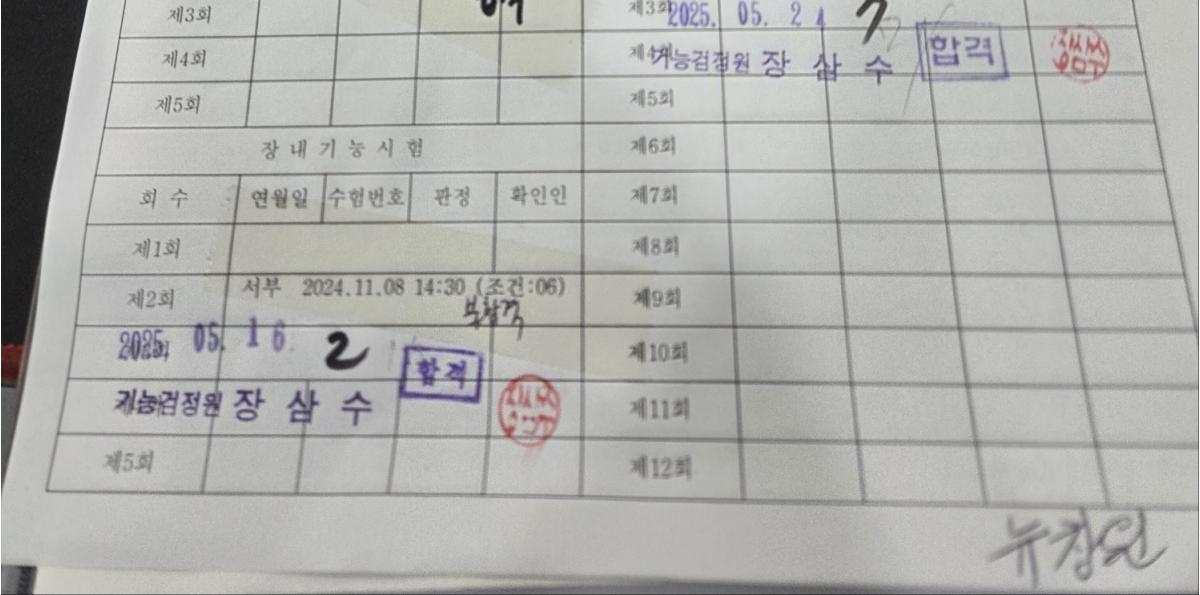 제3회
제4회
제5회
장내기능시험
회수 연월일 수험번호 판정 확인인
제1회
제2회 서부 2024.11.08 14:30 (조건:06)
불합격
2025. 05. 16. 2 합격
기능검정원 장삼수
제5회
제3회 2025. 05. 21 7
기능검정원 장삼수 합격
제5회
제6회
제7회
제8회
제9회
제10회
제11회
제12회
뉴창원